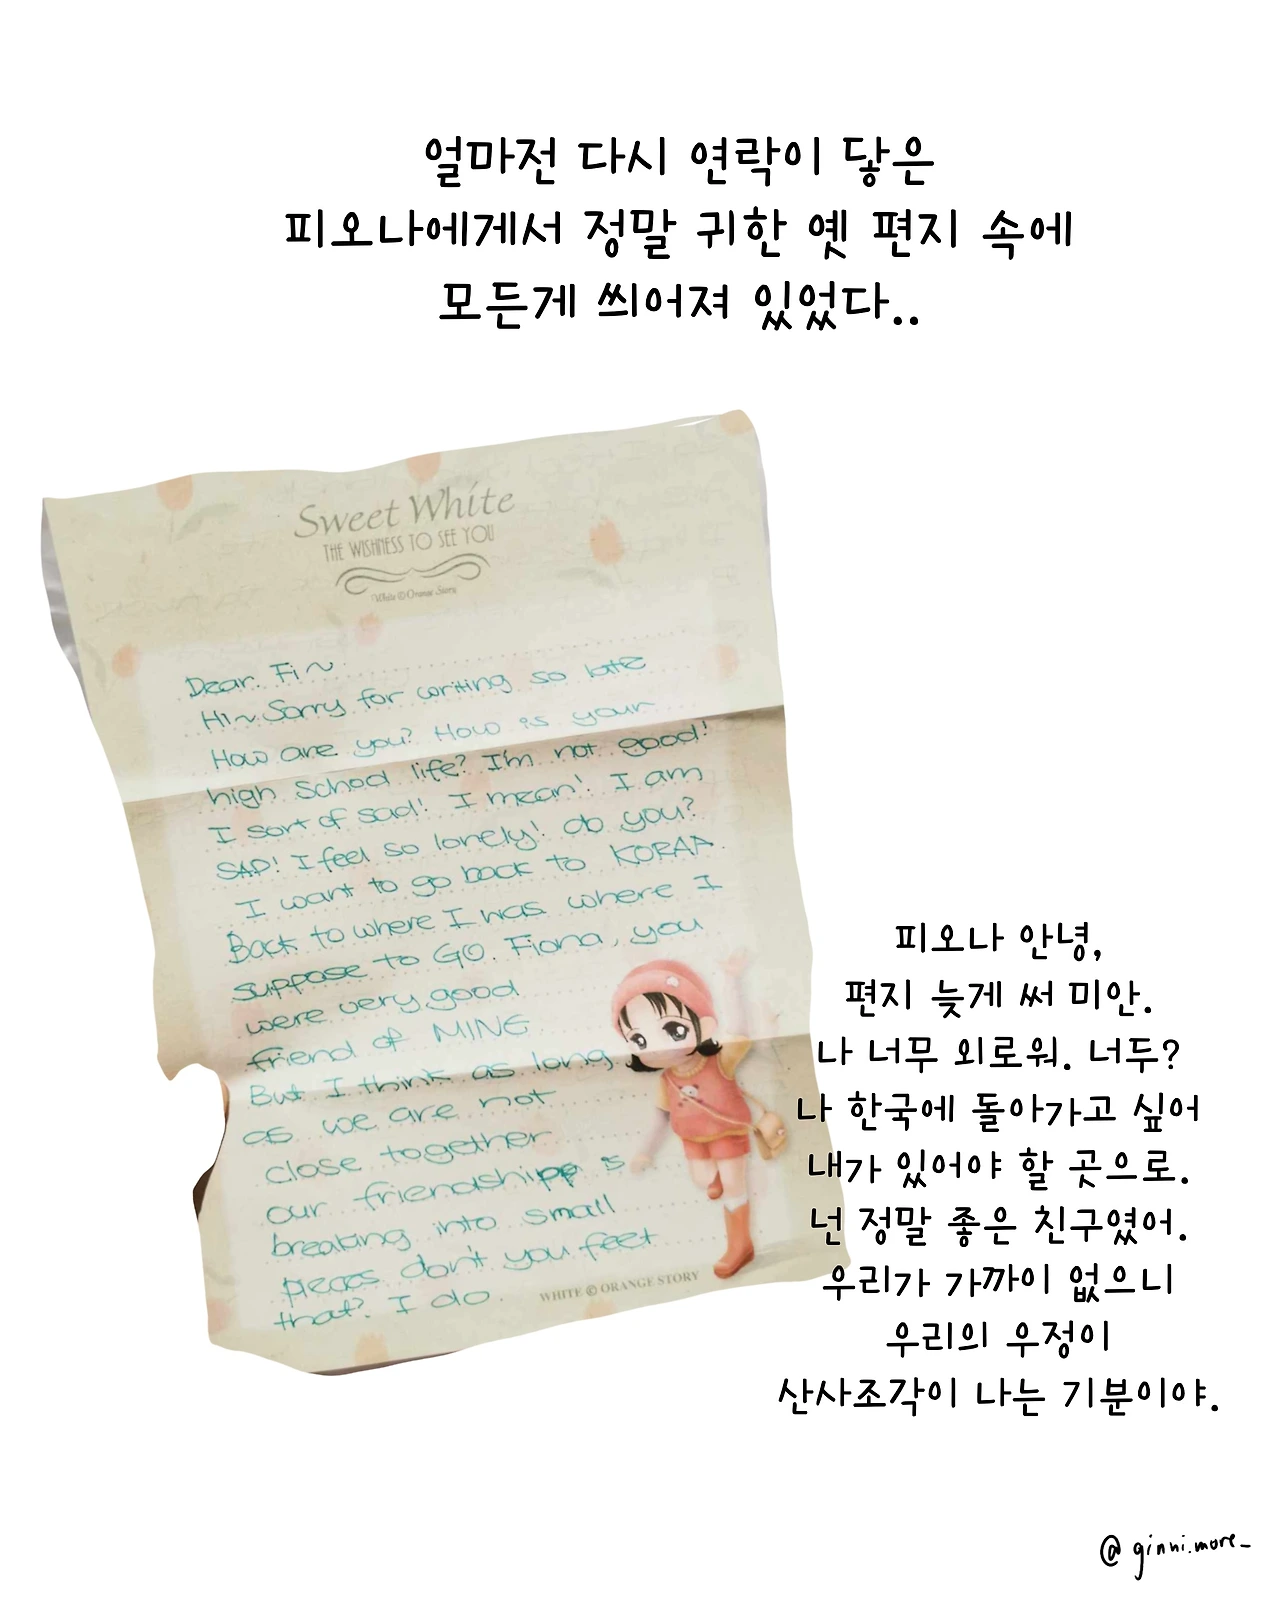 얼마전 다시 연락이 닿은
피오나에게서 정말 귀한 옛 편지 속에
모든게 씌어져 있었다..
Sweet White
THE WISHNESS TO SEE YOU
White © Orange Story
Dear. Fi~
Hi~ Sorry for writing so late
How are you? How is your
high school life? I'm not good!
I sort of sad! I mean! I am
SAD! I feel so lonely! do you?
I want to go back to KORAA.
Back to where I was where I
suppose to GO. Fiona, you
were very good
friend of MINE
But I think as long
as we are not
close together
our friendship s
breaking into small
pieces don't you feel
that? I do.
WHITE © ORANGE STORY
피오나 안녕,
편지 늦게 써 미안.
나 너무 외로워. 너두?
나 한국에 돌아가고 싶어
내가 있어야 할 곳으로.
넌 정말 좋은 친구였어.
우리가 가까이 없으니
우리의 우정이
산사조각이 나는 기분이야.
@ginni.more_